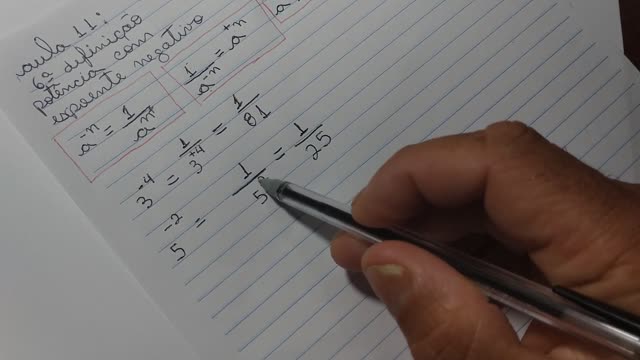 aula 11:
6ª definição
potência com
expoente negativo
a⁻ⁿ = 1/aⁿ
1/a⁻ⁿ = a⁺ⁿ
3⁻⁴ = 1/3⁺⁴ = 1/81
5⁻² = 1/5 = 1/25